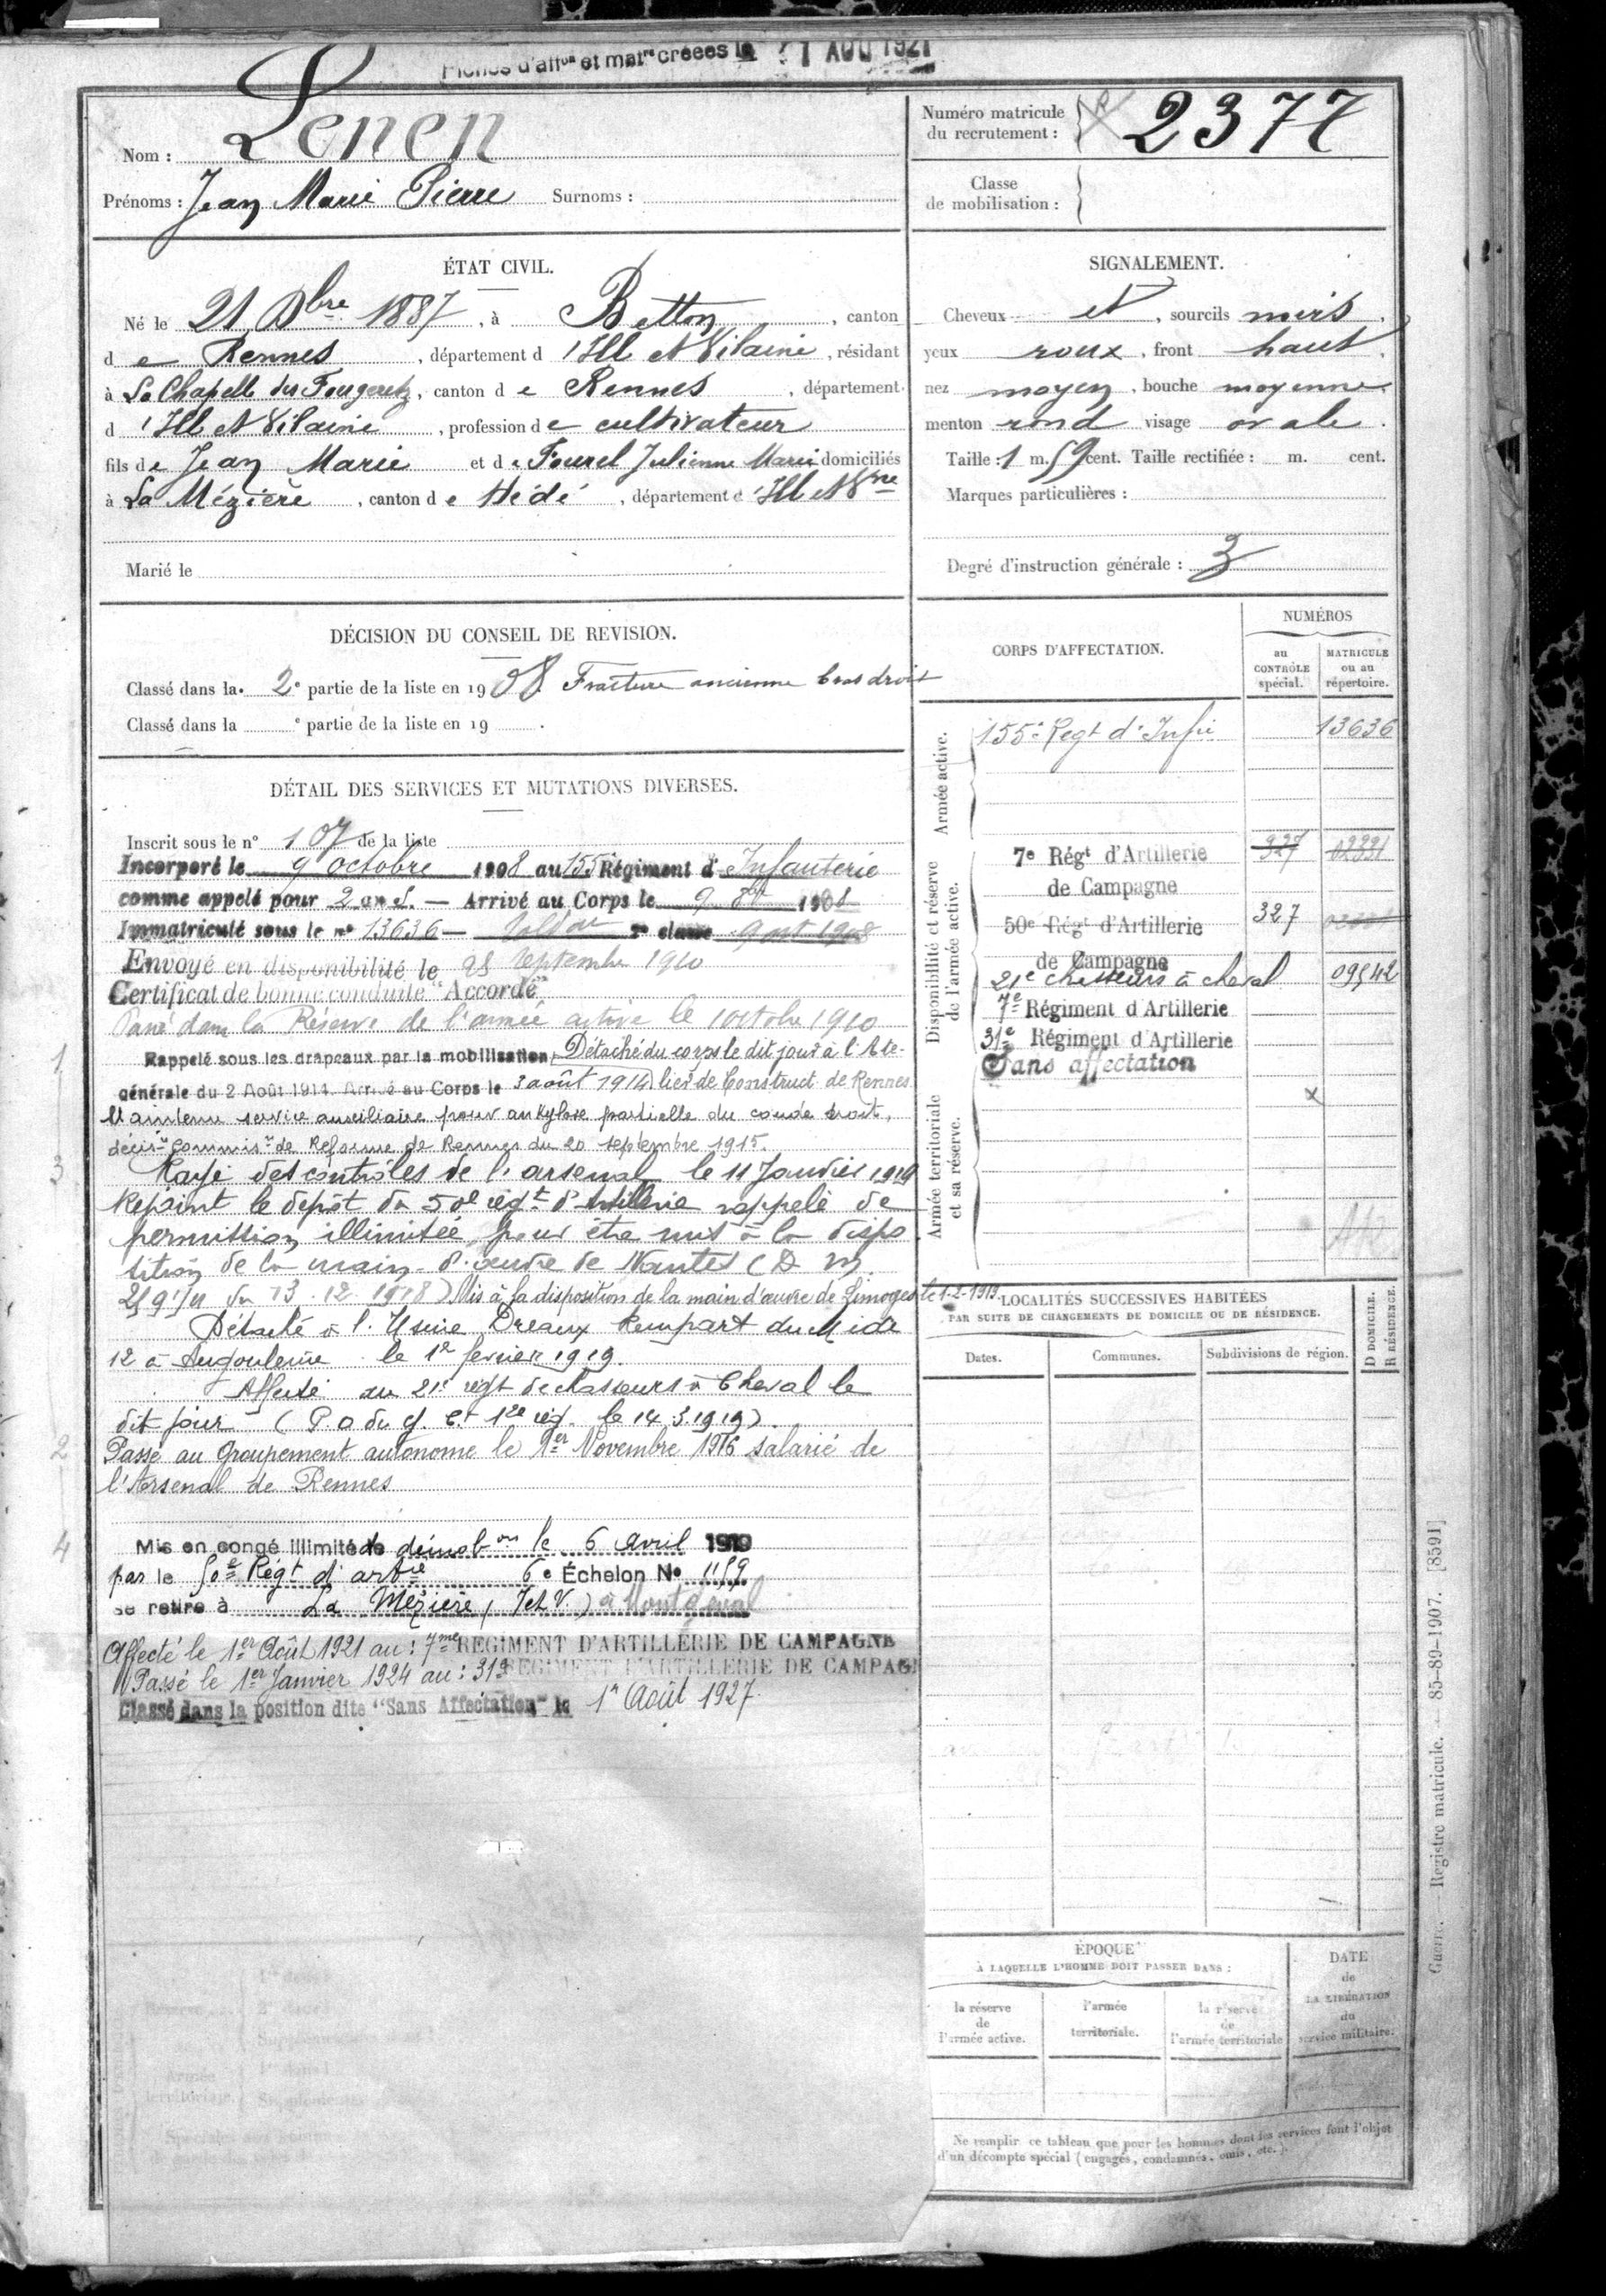 Fiches d'aff^on et mat^re créées le 1 AOU 1921
Nom : Lenen
Prénoms : Jean Marie Pierre Surnoms :
Numéro matricule
du recrutement : 2377
Classe
de mobilisation :
ÉTAT CIVIL.
Né le 21 Xbre 1887, à Betton, canton
de Rennes, département d'Ille et Vilaine, résidant
à La Chapelle des Fougeretz, canton de Rennes, département
d'Ille et Vilaine, profession de cultivateur
fils de Jean Marie et de Fourel Julienne Marie domiciliés
à La Mézière, canton de Hédé, département d'Ille et Vne
Marié le
SIGNALEMENT.
Cheveux et, sourcils noirs,
yeux roux, front haut,
nez moyen, bouche moyenne
menton rond visage ovale.
Taille : 1 m. 59 cent. Taille rectifiée : m. cent.
Marques particulières :
Degré d'instruction générale : 3
DÉCISION DU CONSEIL DE REVISION.
Classé dans la 2e partie de la liste en 1908 Fracture ancienne bras droit
Classé dans la e partie de la liste en 19 .
DÉTAIL DES SERVICES ET MUTATIONS DIVERSES.
Inscrit sous le n° 107 de la liste
Incorporé le 9 octobre 1908 au 155 Régiment d'Infanterie
comme appelé pour 2 ans. — Arrivé au Corps le 9 8bre 1908
Immatriculé sous le n° 13636 — Soldat 2e classe 9 oct 1908
Envoyé en disponibilité le 28 septembre 1910
Certificat de bonne conduite "Accordé"
Passé dans la Réserve de l'armée active le 1 octobre 1910
1
Rappelé sous les drapeaux par la mobilisation Détaché du corps le dit jour à l'Ate-
générale du 2 Août 1914. Arrivé au Corps le 3 août 1914 lier de Construct. de Rennes
Maintenu service auxiliaire pour ankylose partielle du coude droit,
décis^on commis^on de Réforme de Rennes du 20 septembre 1915.
3
Rayé des contrôles de l'arsenal le 11 Janvier 1919
Rejoint le dépôt du 50e régt d'Artillerie rappelé de
permission illimitée pour être mis à la dispo
sition de la main d'œuvre de Nantes (D. M.
du 13.12.1918) Mis à la disposition de la main d'œuvre de Limoges le 1-2-1919.
Détaché à l'Usine Dreaux Rempart du Midi
12 à Angoulême le 1er février 1919.
Affecté au 21e régt de chasseurs à Cheval le
dit jour (P.O du G. Ct 12e rég. le 14.3.1919).
2
Passé au Groupement autonome le 1er Novembre 1916 salarié de
l'Arsenal de Rennes
4
Mis en congé illimité de démob^on le 6 Avril 1919
par le 50e Régt d'artie 6e Échelon N° 1159
se retire à La Mézière (I et V.) à Montgerval
Affecté le 1er Août 1921 au : 7me REGIMENT D'ARTILLERIE DE CAMPAGNE
Passé le 1er Janvier 1924 au : 31e REGIMENT D'ARTILLERIE DE CAMPAGN
Classé dans la position dite "Sans Affectation" le 1er Août 1927.
CORPS D'AFFECTATION.
NUMÉROS
au
CONTRÔLE
spécial.
MATRICULE
ou au
répertoire.
Armée active.
155e Regt d'Infie 13636
Disponibilité et réserve
de l'armée active.
7e Régt d'Artillerie 927
de Campagne
50e Régt d'Artillerie 327
de Campagne
21e chasseurs à cheval 09542
7e Régiment d'Artillerie
31e Régiment d'Artillerie
Sans affectation
x
Armée territoriale
et sa réserve.
LOCALITÉS SUCCESSIVES HABITÉES
PAR SUITE DE CHANGEMENTS DE DOMICILE OU DE RÉSIDENCE.
Dates. Communes. Subdivisions de région.
D DOMICILE.
R RÉSIDENCE.
ÉPOQUE
À LAQUELLE L'HOMME DOIT PASSER DANS :
la réserve
de
l'armée active.
l'armée
territoriale.
la réserve
de
l'armée territoriale
DATE
de
LA LIBÉRATION
du
service militaire.
Ne remplir ce tableau que pour les hommes dont les services font l'objet
d'un décompte spécial (engagés, condamnés, omis, etc.).
Guerre. — Registre matricule. — 85-89-1907. [8591]